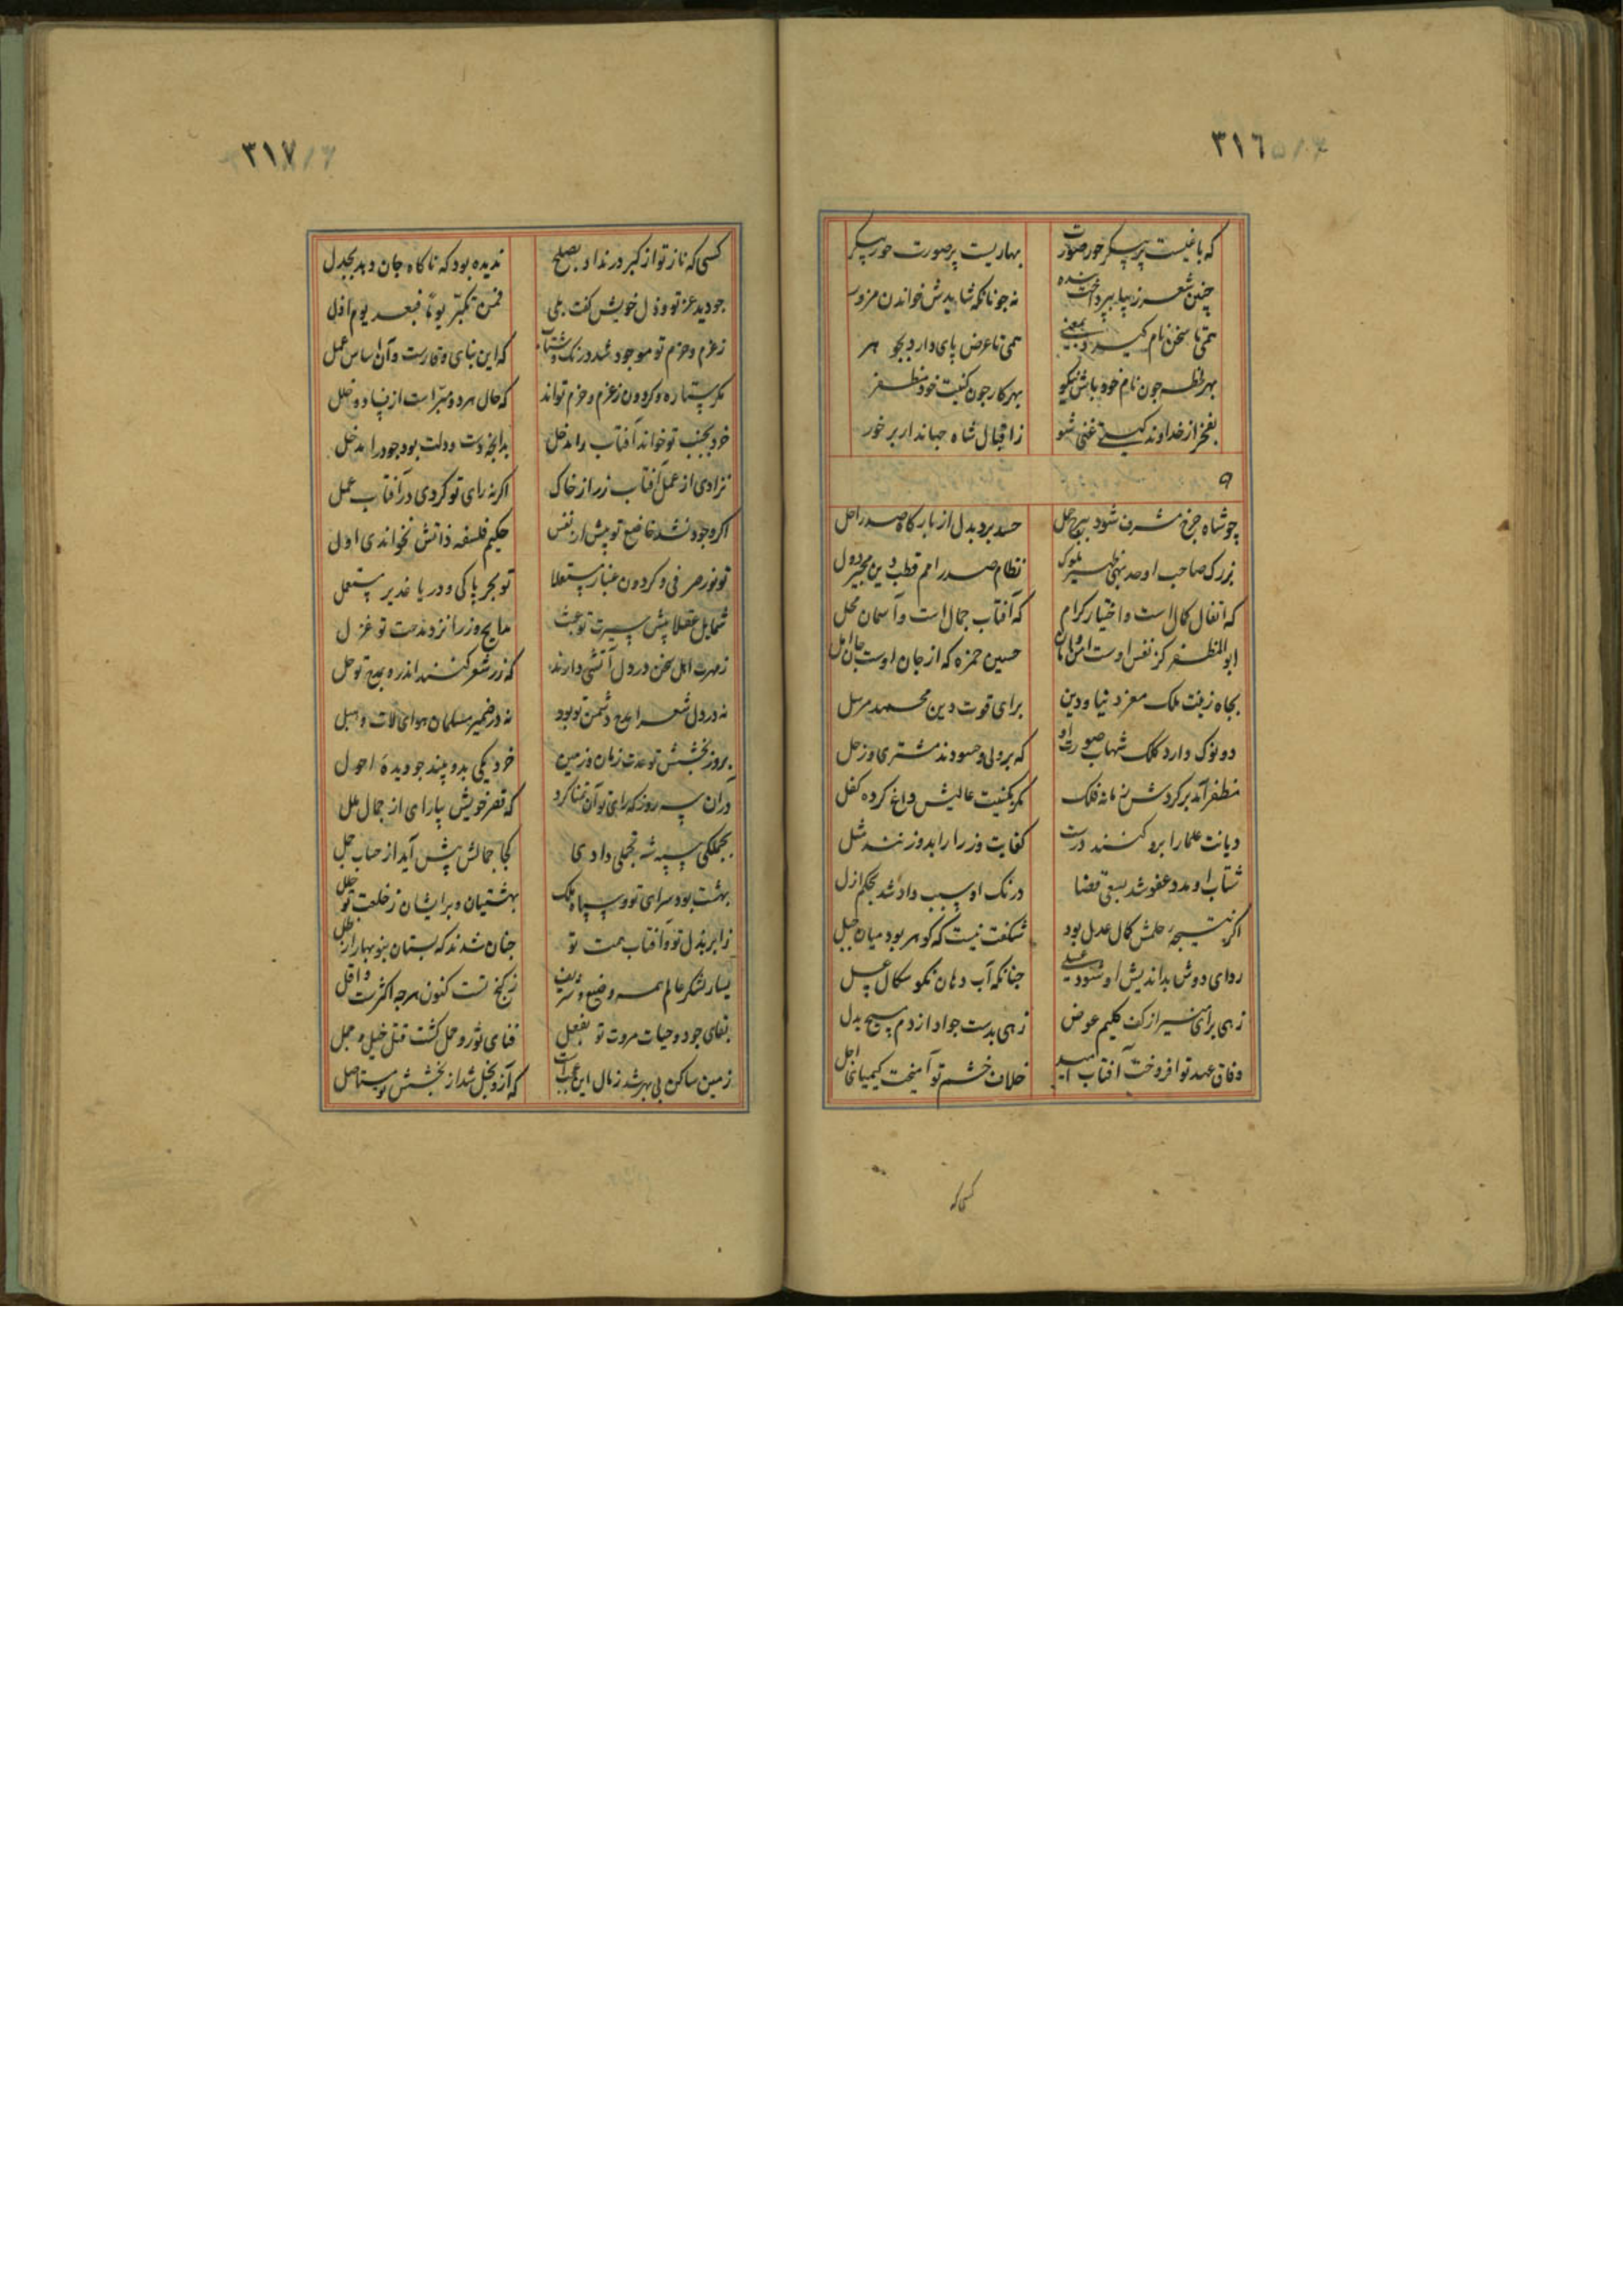 ۳۱۶
که باغیست پرپیکر حورصورت بهاریست پرصورت حورپیکر
چنین شعر زیبا بپرداخت بنده نه جونانکه شایدش خواندن مزور
همی تا سخن نام گیرد بمعنی همی تا عرض پای دارد بجوهر
بهر لحظه جون نام خود باش نیکو بهر کار جون کنیت خود مظفر
بفخر از خداوند کیتی غنی شو زاقبال شاه جهاندار برخور
۹
چو شاه چرخ مشرف شود ببرج حمل حسد برد بدل از بارکاه صدر اجل
بزرک صاحب اوحد بهی ظهیر ملوک نظام صدر امم قطب دین مجیر دول
که اتفال کمال است و اختیار کرام که آفتاب جمال است و آسمان محل
ابوالمظفر کز نفس اوست امن و امان حسین حمزه که از جان اوست جان امل
بجاه زینت ملک معز دنیا و دین برای قوت دین محمد مرسل
دو نوک دارد کلک شهاب صورت او که بر ولی و حسودند مشتری و زحل
مظفر آمد بر کردش زمانه فلک مکر بکنیت عالیش داغ کرده کفل
دیانت علما را برو کنند درست کفایت وزرا را بدو زنند مثل
شتاب او مدد عفو شد بسعی قضا درنک او سبب داد شد بحکم ازل
اکر نتیجه حلمش کمال عدل بود شکفت نیست که کوهر بود میان جبل
ردای دوش بداندیش او شود عسلی جنانکه آب دهان نکو سکال عسل
زهی برای منیر از کف کلیم عوض زهی بدست جواد از دم مسیح بدل
وفاق عهد تو افروخت آفتاب امید خلاف خشم تو آمیخت کیمیای اجل
کسی که
۳۱۷
کسی که ناز تو از کبر در نداد بصلح ندیده بود که ناکاه جان دهد بجدل
جو دید عز تو و ذل خویش کفت بلی فمن تکبر یوما فبعد یوم اذل
زعزم و حزم تو موجود شد درنک و شتاب که این بنای وقارست و آن اساس عمل
مکر ستاره و کردون زعزم و حزم تواند که حال هر دو مبراست از فساد و خلل
خرد بجنب تو خواند آفتاب را مدخل بدانچه دست و دلت بود جود را مدخل
نزادی از عمل آفتاب زر از خاک اکر نه رای تو کردی در آفتاب عمل
اکر وجود نشد خاضع تو پیش از نفس حکیم فلسفه ذاتش نخواندی اول
تو نور صرفی و کردون غبار مستعلا تو بحر پاکی و دریا غدیر مستعمل
شمایل عقلا پیش سیرت تو عبث مدایح وزرا نزد مدحت تو غزل
زمهرت اهل سخن در دل آتشی دارند که زر شعر کنند اندره مدیح تو حل
نه در دل شعرا مدح دشمن تو بود نه در ضمیر مسلمان هوای لات و هبل
بروز بخشش تو عدت زمان و زمین خرد یکی بدو بیند جو دیده احول
در آن سه روز که رای تو آن تمنا کرد که قصر خویش بیارای از جمال ملل
بجملکی سپه شه تجملی دادی کجا جمالش پیش آید از حساب جمل
بهشت بود سرای تو و سپاه ملک بهشتیان و بر ایشان زخلعت تو حلل
زابر بذل تو و آفتاب همت تو جنان شدند که بستان بنوبهار از طل
یسار لشکر عالم همه وضیع و شریف زکنج تست کنون هرجه اکثرست و اقل
بقای جود و حیات مروت تو بفعل فنای ثور و حمل کشت قتل خیل و جمل
زمین ساکن بی بهر شد زمال این عجب است که آز و بخل شد از بخشش تو مستاصل